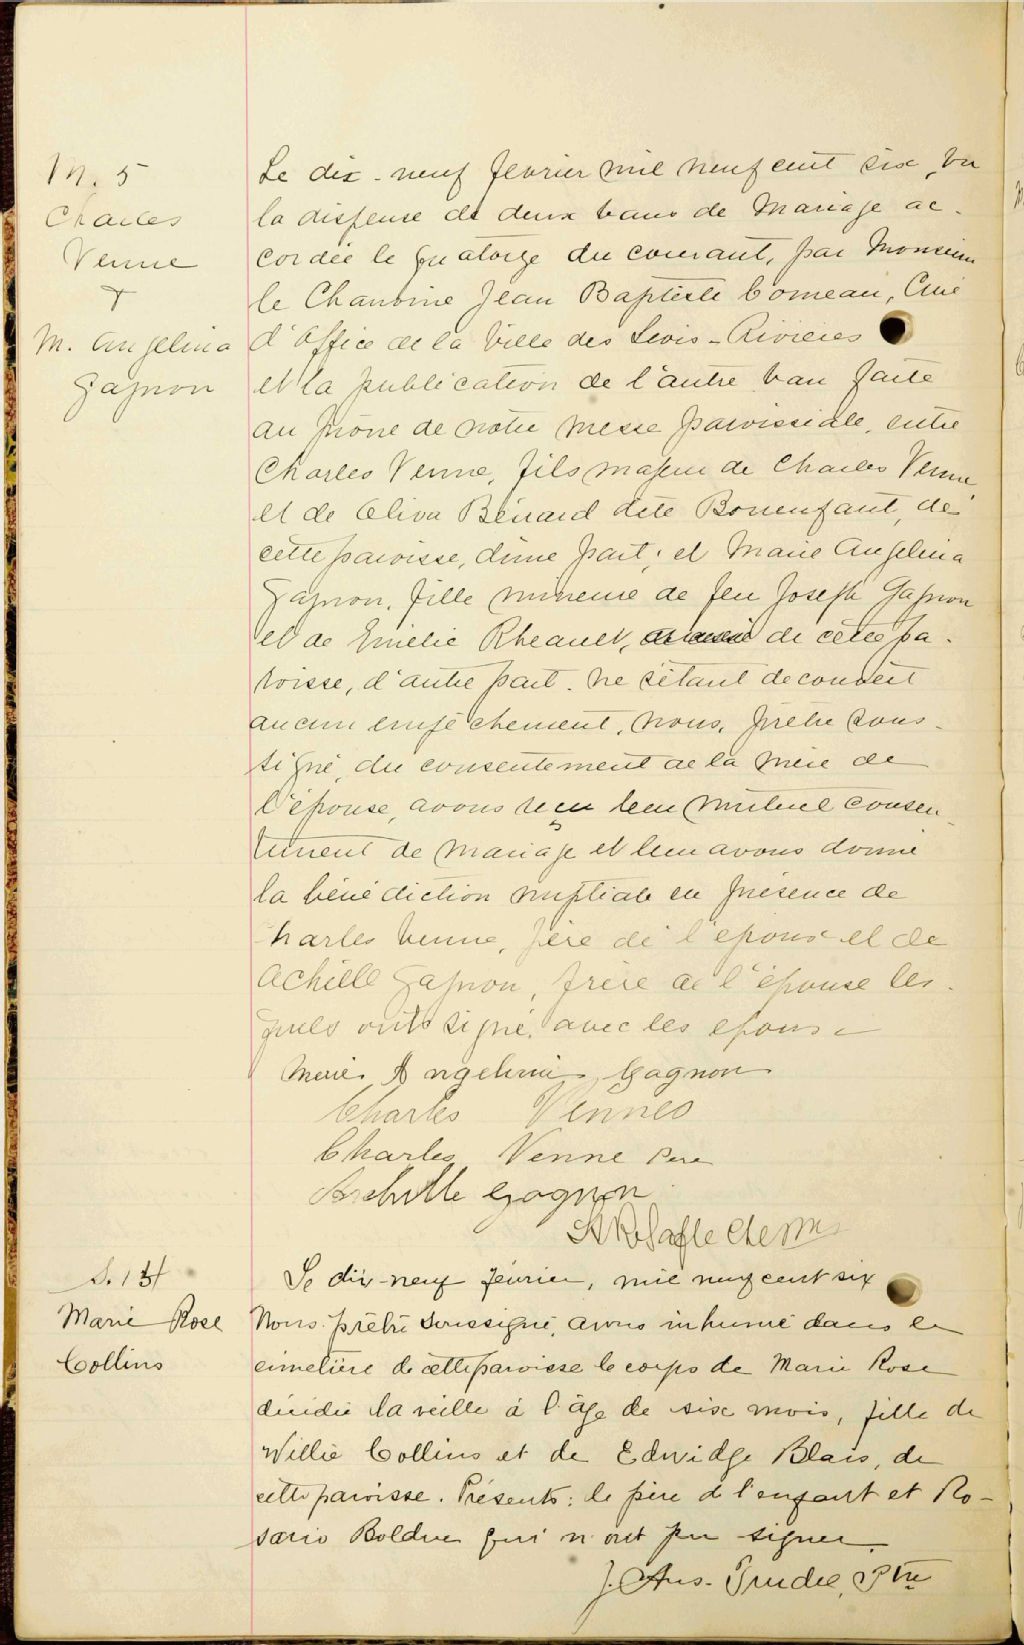 M. 5
Charles
Venne
&
M. Angelina
Gagnon
Le dix-neuf février mil neuf cent six, vu
la dispense de deux bans de Mariage ac-
cordée le quatorze du courant, par Monsieur
le Chanoine Jean Baptiste Comeau, Curé
d'Office de la Ville des Trois-Rivières
et la publication de l'autre ban faite
au prône de notre messe paroissiale, entre
Charles Venne, fils majeur de Charles Venne
et de Oliva Bénard dite Bonenfant, de
cette paroisse, d'une part; et Marie Angelina
Gagnon, fille mineure de feu Joseph Gagnon
et de Emélie Rheault, de cette pa-
roisse, d'autre part. Ne s'étant découvert
aucun empêchement, nous, prêtre sous-
signé, du consentement de la mère de
l'épouse, avons reçu leur mutuel consen-
tement de mariage et leur avons donné
la bénédiction nuptiale en présence de
Charles Venne, père de l'époux et de
Achille Gagnon, frère de l'épouse les-
quels ont signé avec les époux
Marie Angelina Gagnon
Charles Vennes
Charles Venne Père
Archille Gagnon
S. 13
Marie Rose
Collins
Le dix-neuf février, mil neuf cent six
Nous prêtre soussigné, avons inhumé dans le
cimetière de cette paroisse le corps de Marie Rose
décédée la veille à l'âge de six mois, fille de
Willie Collins et de Edwidge Blais, de
cette paroisse. Présents: le père de l'enfant et Ro-
sario Bolduc qui n'ont pu signer.
J. Ans. Trudel, Ptre